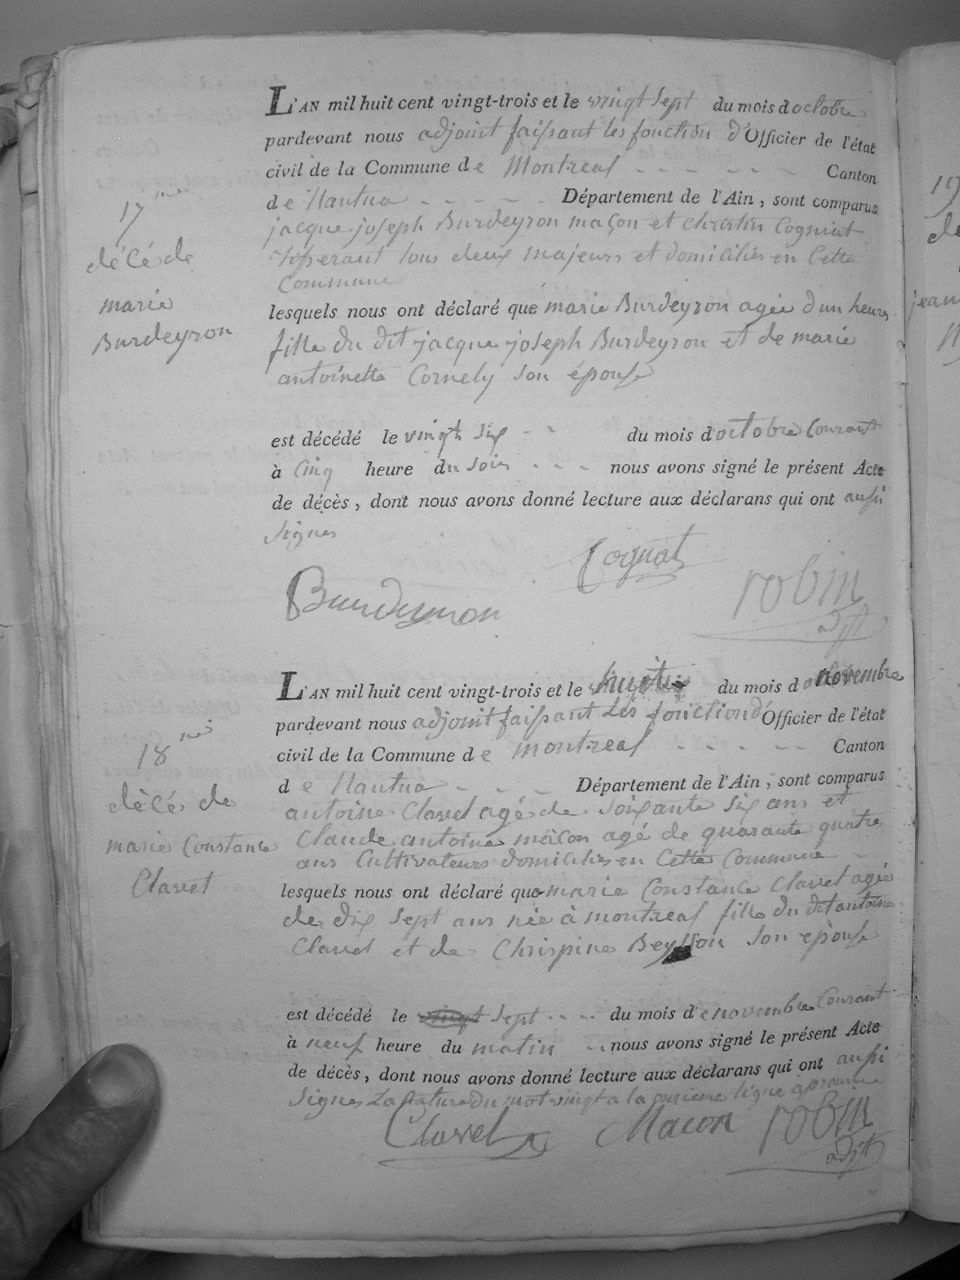 L'AN mil huit cent vingt-trois et le vingt Sept du mois d octobre
pardevant nous adjoint faissant les fonction d'Officier de l'état
civil de la Commune de Montreal Canton
de Nantua Département de l'Ain, sont comparus
17me
jacque joseph Burdeyron maçon et Cogniat
décé de
tous deux majeurs et domicilies en Cette
Commune
marie
lesquels nous ont déclaré que marie Burdeyron agée d'un heures
Burdeyron
fille du dit jacque joseph Burdeyron et de marie
antoinette Cornely son épouse
est décédé le vingt six du mois d'octobre Courant
à Cinq heure du soir nous avons signé le présent Acte
de décès, dont nous avons donné lecture aux déclarans qui ont aussi
signes
Cognat
Burdeyron
robin
adjt
L'AN mil huit cent vingt-trois et le huit du mois d novembre
pardevant nous adjoint faissant les fonction d'Officier de l'état
civil de la Commune de montreal Canton
18me
de Nantua Département de l'Ain, sont comparus
antoine Clavel agé de soixante six ans et
décés de
Claude antoine mâcon agé de quarante quatre
marie Constance
ans Cultivateurs domicilies en Cette Commune
Clavet
lesquels nous ont déclaré que marie Constance Clavet agée
de dix sept ans née à montreal fille du dit antoine
Clavet et de Chrispine Beysson son epouse
est décédé le vingt sept du mois d'e novembre Courant
à neuf heure du matin nous avons signé le présent Acte
de décès, dont nous avons donné lecture aux déclarans qui ont aussi
signes La Rature du mot vingt a la ligne aprouvée
Clavel Macon robin
adjt
19
de
jean